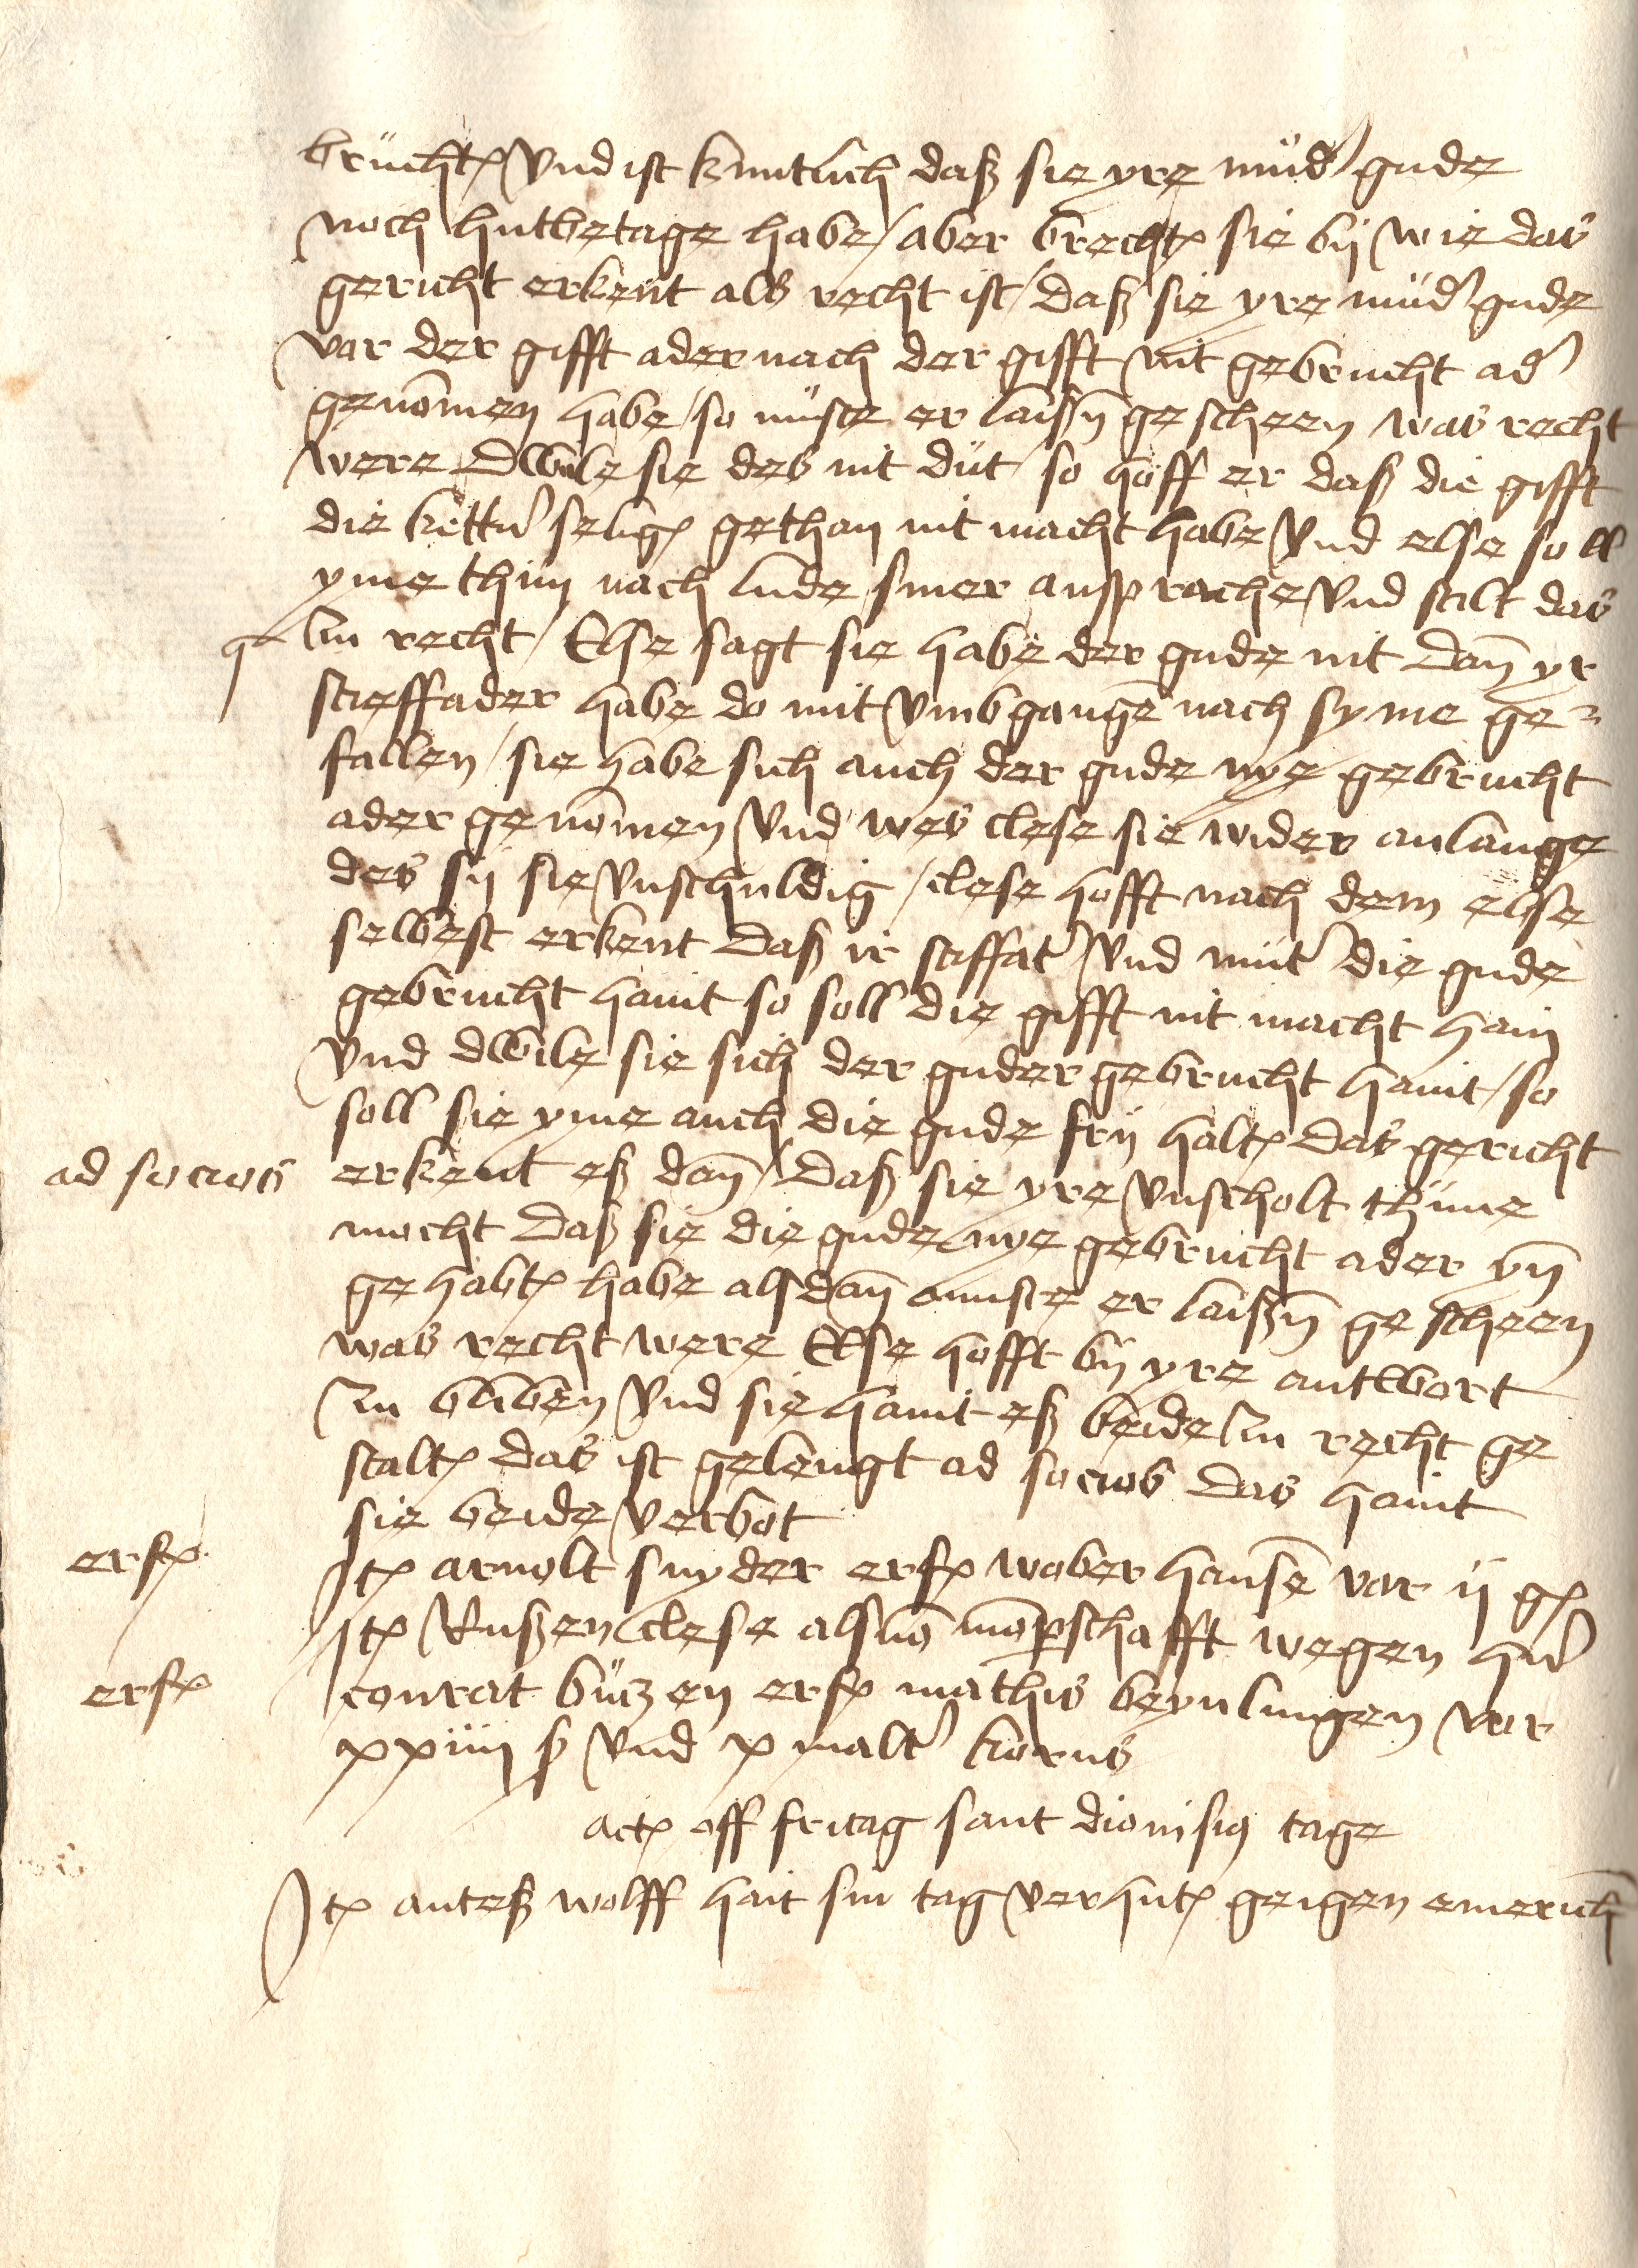 brucht und ist kuntlich daß sie yre mud gude
noch hutbetage habe / aber brecht sie bij wie das
gericht erkent als recht ist / daß sie yre mud gude
vor der gifft ader nach der gifft nit gebrucht ad
genomen habe / so muste er laißn gescheen was recht
were dwile sie des nit dut / so hoff er daß die gifft
die kett selig gethan nit macht habe und else soll
yme thun nach lude siner ansprache und stilt das
zu recht / Else sagt sie habe der gude nit dan yr
stieffader habe do mit umbgangen nach syme ge-
fallen / sie habe sich auch der gude nye gebrucht
ader genomen und wes clese sie wider anlange
des sij sie unschuldig / clese hofft nach dem else
selbest erkent daß ir stiffat und mut die gude
gebrucht haint so soll die gifft nit macht hain
und dwile sie sich der guder gebrucht haint / so
soll sie yme auch die gude frij halt das gericht
ad socios erkent eß dan / daß sie yre unscholt thune
mocht daß sie die gude nye gebrucht ader yn
gehabt habe alsdan muste er laißn gescheen
was recht were Else hofft bij yre antwort
zu bliben und sie haint eß beide zu recht ge
stalt das ist gelengt ad socios das haint
sie beide verbot
erf It arnolt snyder erf wober hansen vor ij g
It Rußen clese als von momperschafft wegen
erf conrat butzen erf mathis beynlingen vor
xxiiij ß und x malt korns
act off fritag sant dionisius tage
It anteß wolff hait sin tag verhut geigen emerich